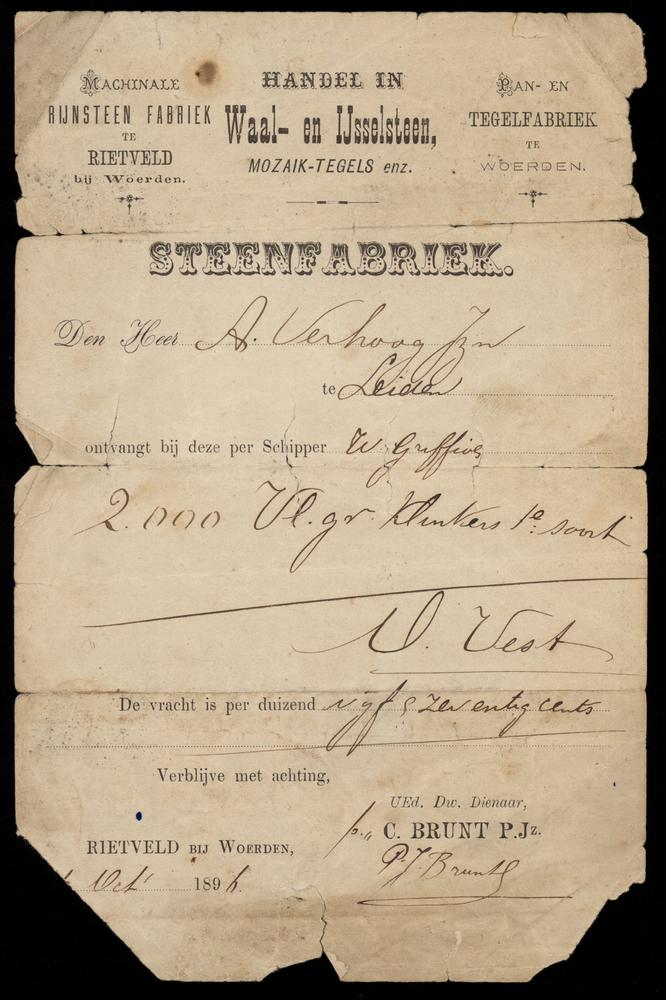 MACHINALE
RIJNSTEEN FABRIEK
TE
RIETVELD
bij Woerden.
HANDEL IN
Waal- en IJsselsteen,
MOZAIK-TEGELS enz.
PAN- EN
TEGELFABRIEK
TE
WOERDEN.
STEENFABRIEK.
Den Heer A. Verhoog Jzn
te Leiden
ontvangt bij deze per Schipper W Griffioe
2.000 Vl. gr. klinkers 1e soort
O. Vest
De vracht is per duizend vyf & zeventig cents
Verblijve met achting,
UEd. Dw. Dienaar,
p.„ C. BRUNT P.Jz.
P.J. Brunt
RIETVELD BIJ WOERDEN,
Oct 189